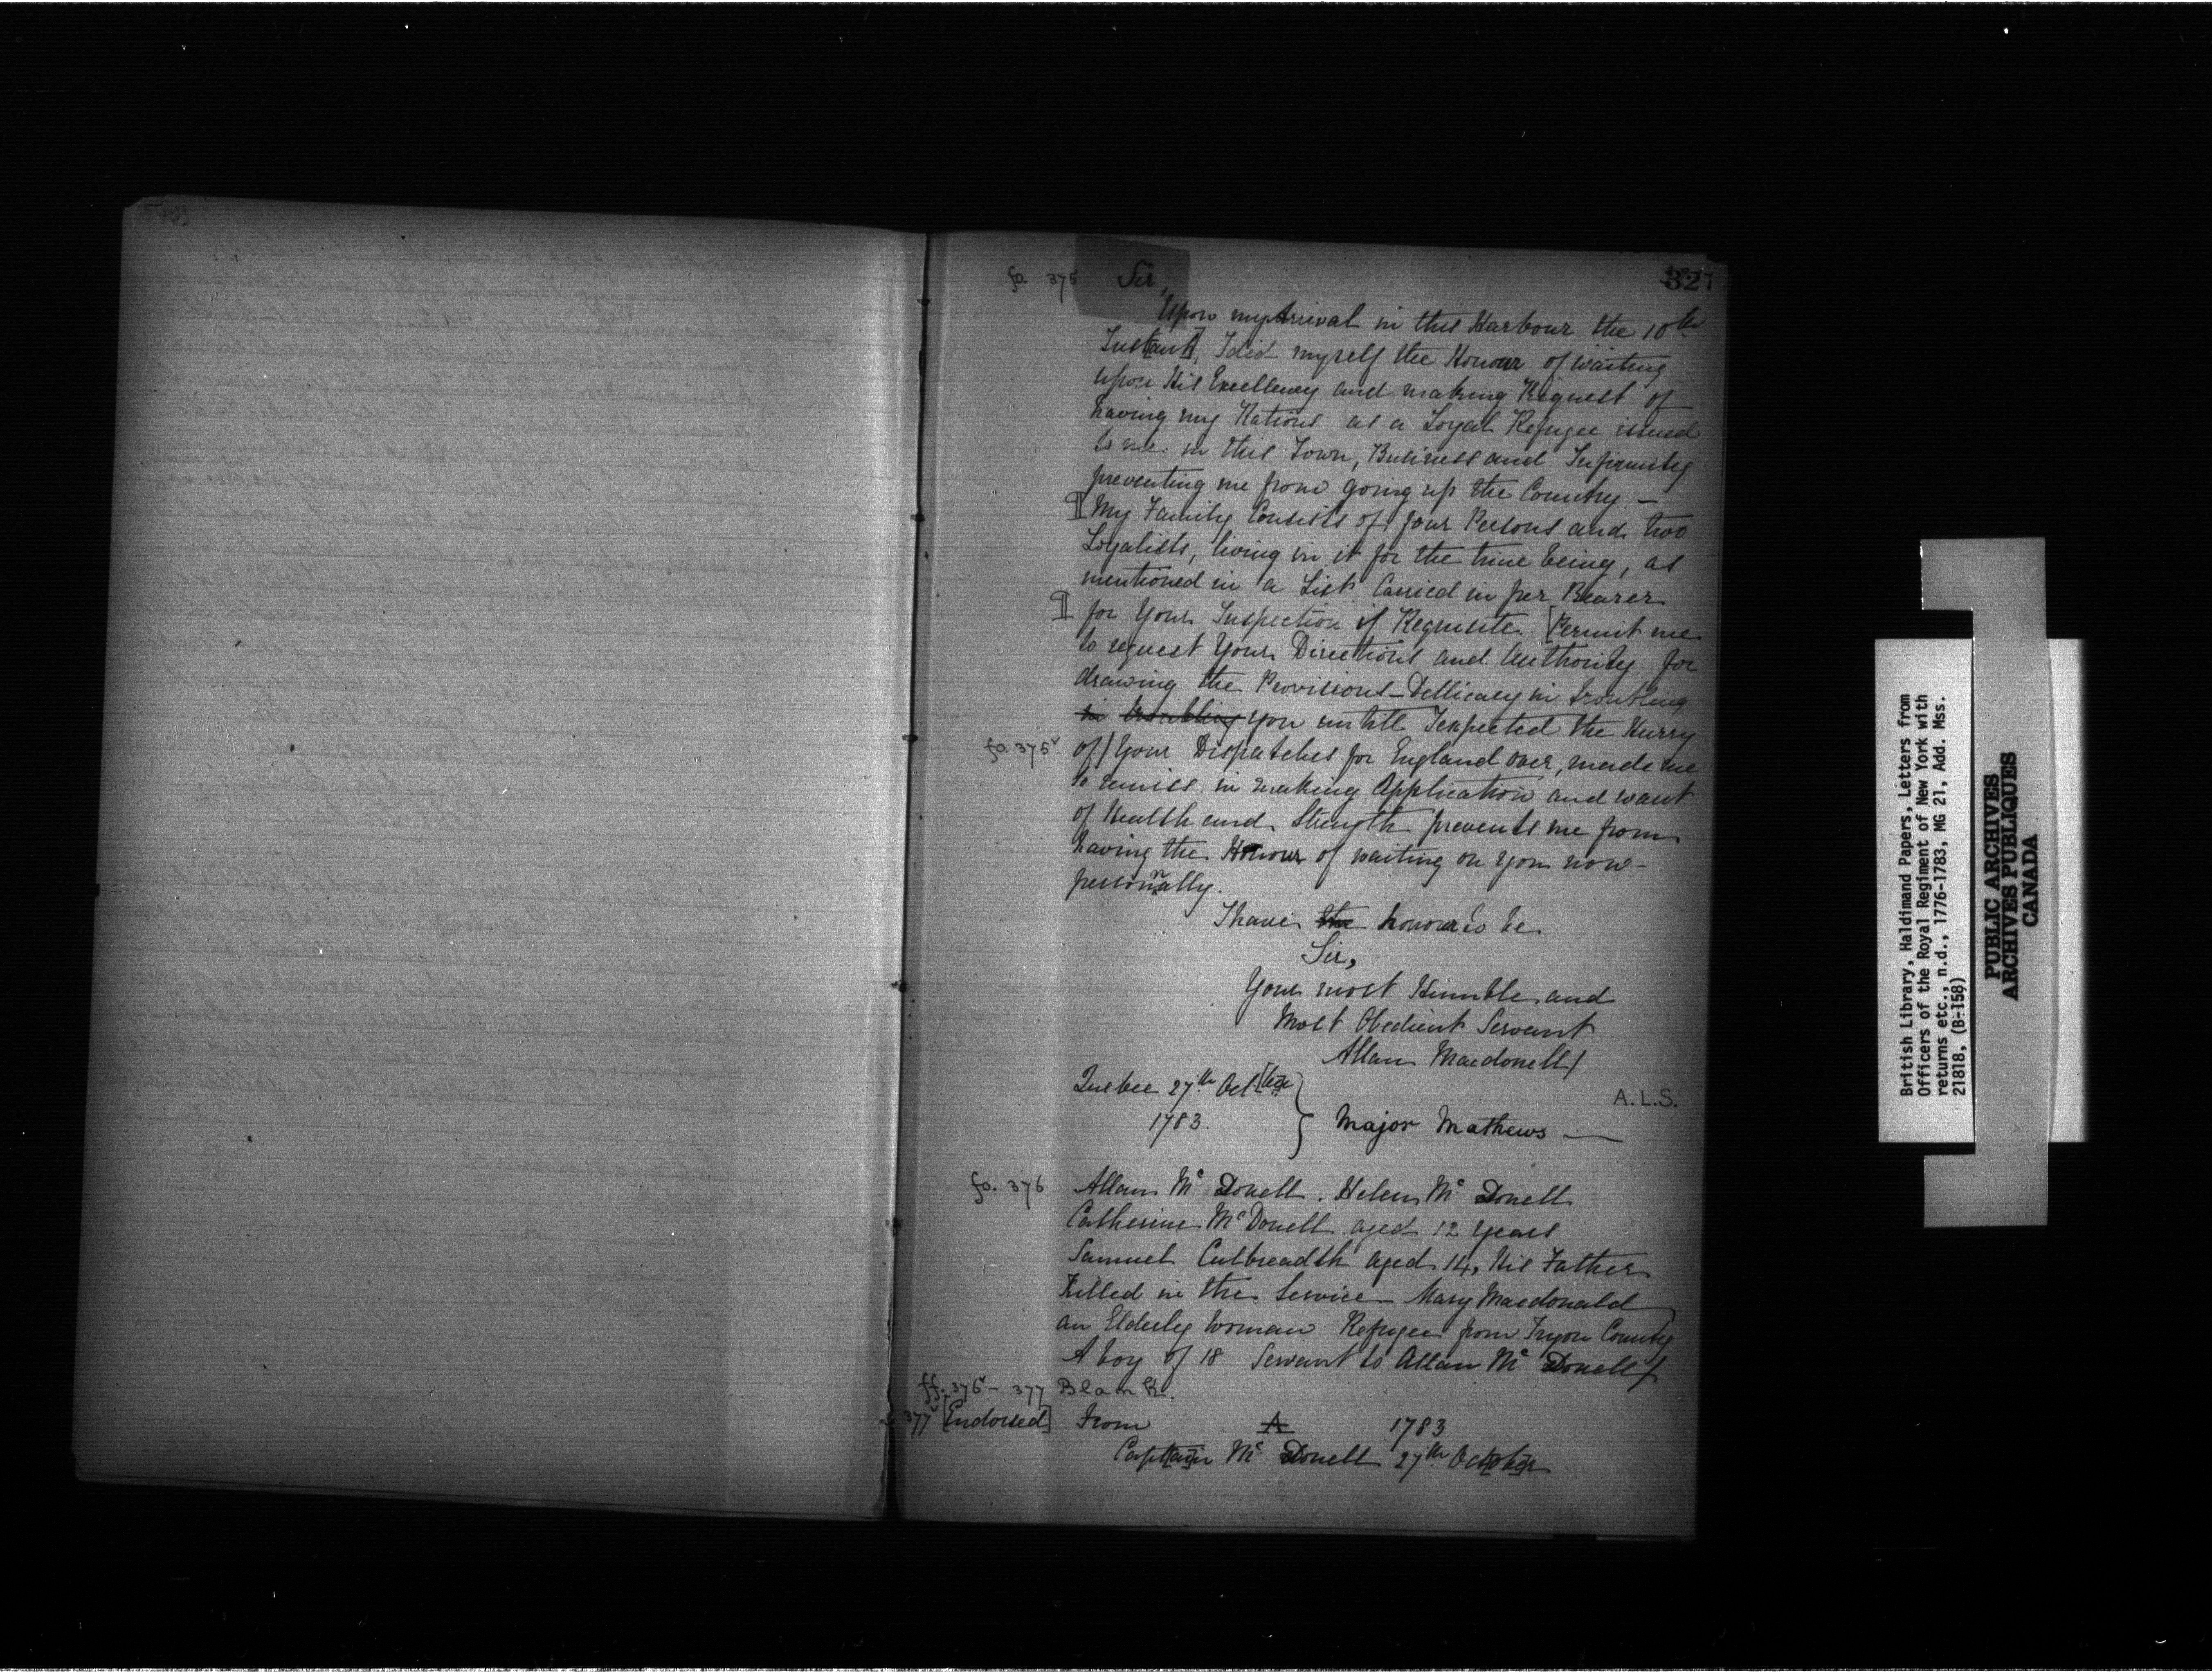 327
fo. 375 Sir,
Upon my Arrival in this Harbour the 10th
Inst[ant], I did myself the Honour of waiting
upon His Excellency and making Request of
having my Rations as a Loyal Refugee issued
to me in this Town, Business and Infirmity
preventing me from going up the Country. —
¶ My Family Consists of four Persons and two
Loyalists, living in it for the time being, as
mentioned in a List Carried in per Bearer
¶ for Your Inspection if Requisite. [Permit me
to request Your Directions and Authority for
drawing the Provisions – Dellicacy in troubling
in troubling you untill I expected the Hurry
fo. 375v of / Your Dispatches for England over, made me
so remiss in making Application and want
of Health and Strength prevents me from
having the Honour of waiting on you now –
personally.
I have the honour to be
Sir,
Your most Humble and
Most Obedient Servant
Allan Macdonell /
Quebec 27th Oct[ber]
A.L.S.
1783. } Major Mathews —
fo. 376 Allan Mc Donell. Helen Mc Donell
Catherine McDonell aged 12 years
Samuel Cutbreadth aged 14, His Father
Killed in the Service – Mary Macdonald
an Elderly woman Refugee from Tryon County
A boy of 18 Servant to Allan Mc Donell /
ff. 376v – 377 Blank.
377v [Endorsed] From A 1783
Capt[ai]n Mc Donell 27th Oct[obe]r
British Library, Haldimand Papers, Letters from
Officers of the Royal Regiment of New York with
returns etc., n.d., 1776-1783, MG 21, Add. Mss.
21818, (B-158)
PUBLIC ARCHIVES
ARCHIVES PUBLIQUES
CANADA